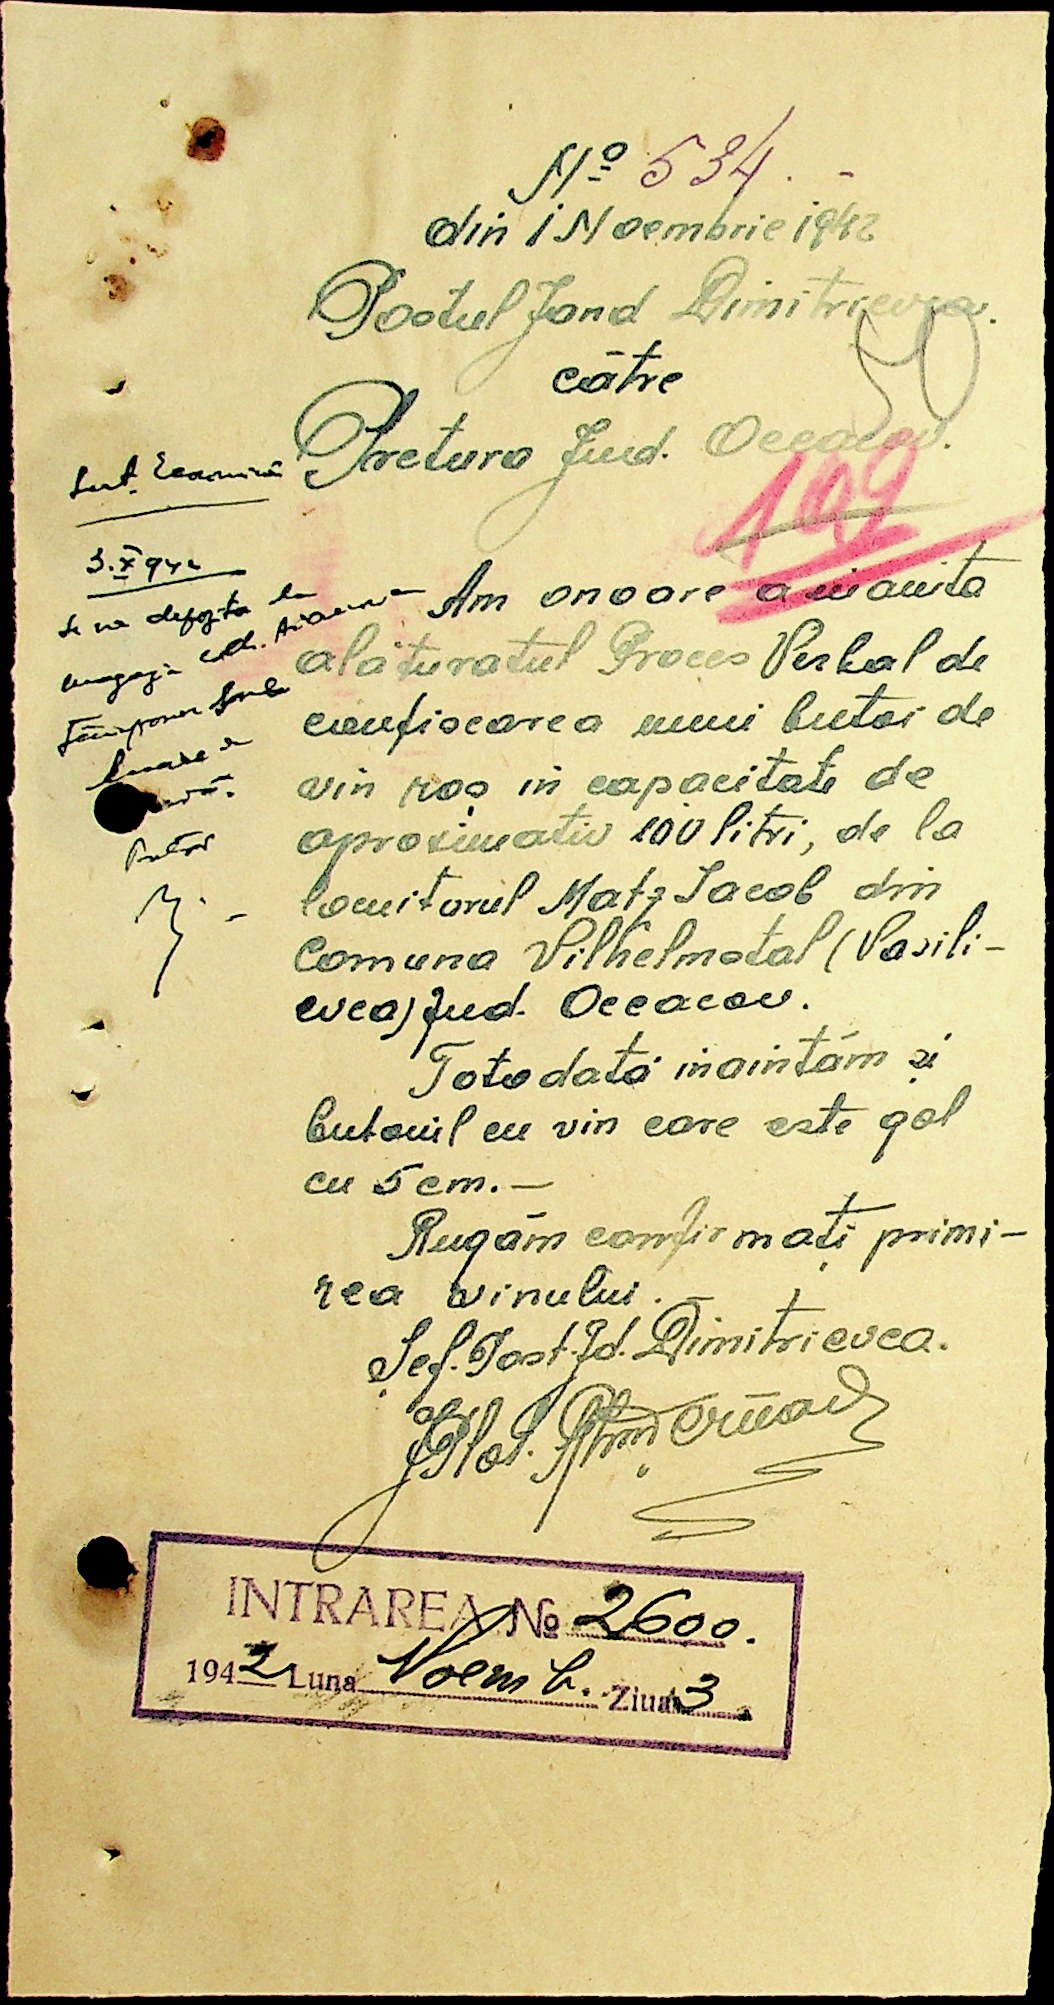 Nº 534. -
din 1 Noembrie 1942
Postul Jand Dimitrievca.
către
Pretura Jud. Oceacov.
50
192
Am onoare a inainta
alăturatul Proces Verbal de
confiscarea unui butoi de
vin roș in capacitate de
aproximativ 100 litri, de la
locuitorul Matz Iacob din
Comuna Vilhelmstal (Vasili-
evca) Jud. Oceacov.
Totodată inaintăm și
butoiul cu vin care este gol
cu 5 cm. —
Rugăm confirmați primi-
rea vinului. —
Șef. Post. Jd. Dimitrievca.
Plot.
3.X 942
se va depozita la
Pretor
INTRAREA Nº 2600.
1942 Luna Noemb. Ziua 3